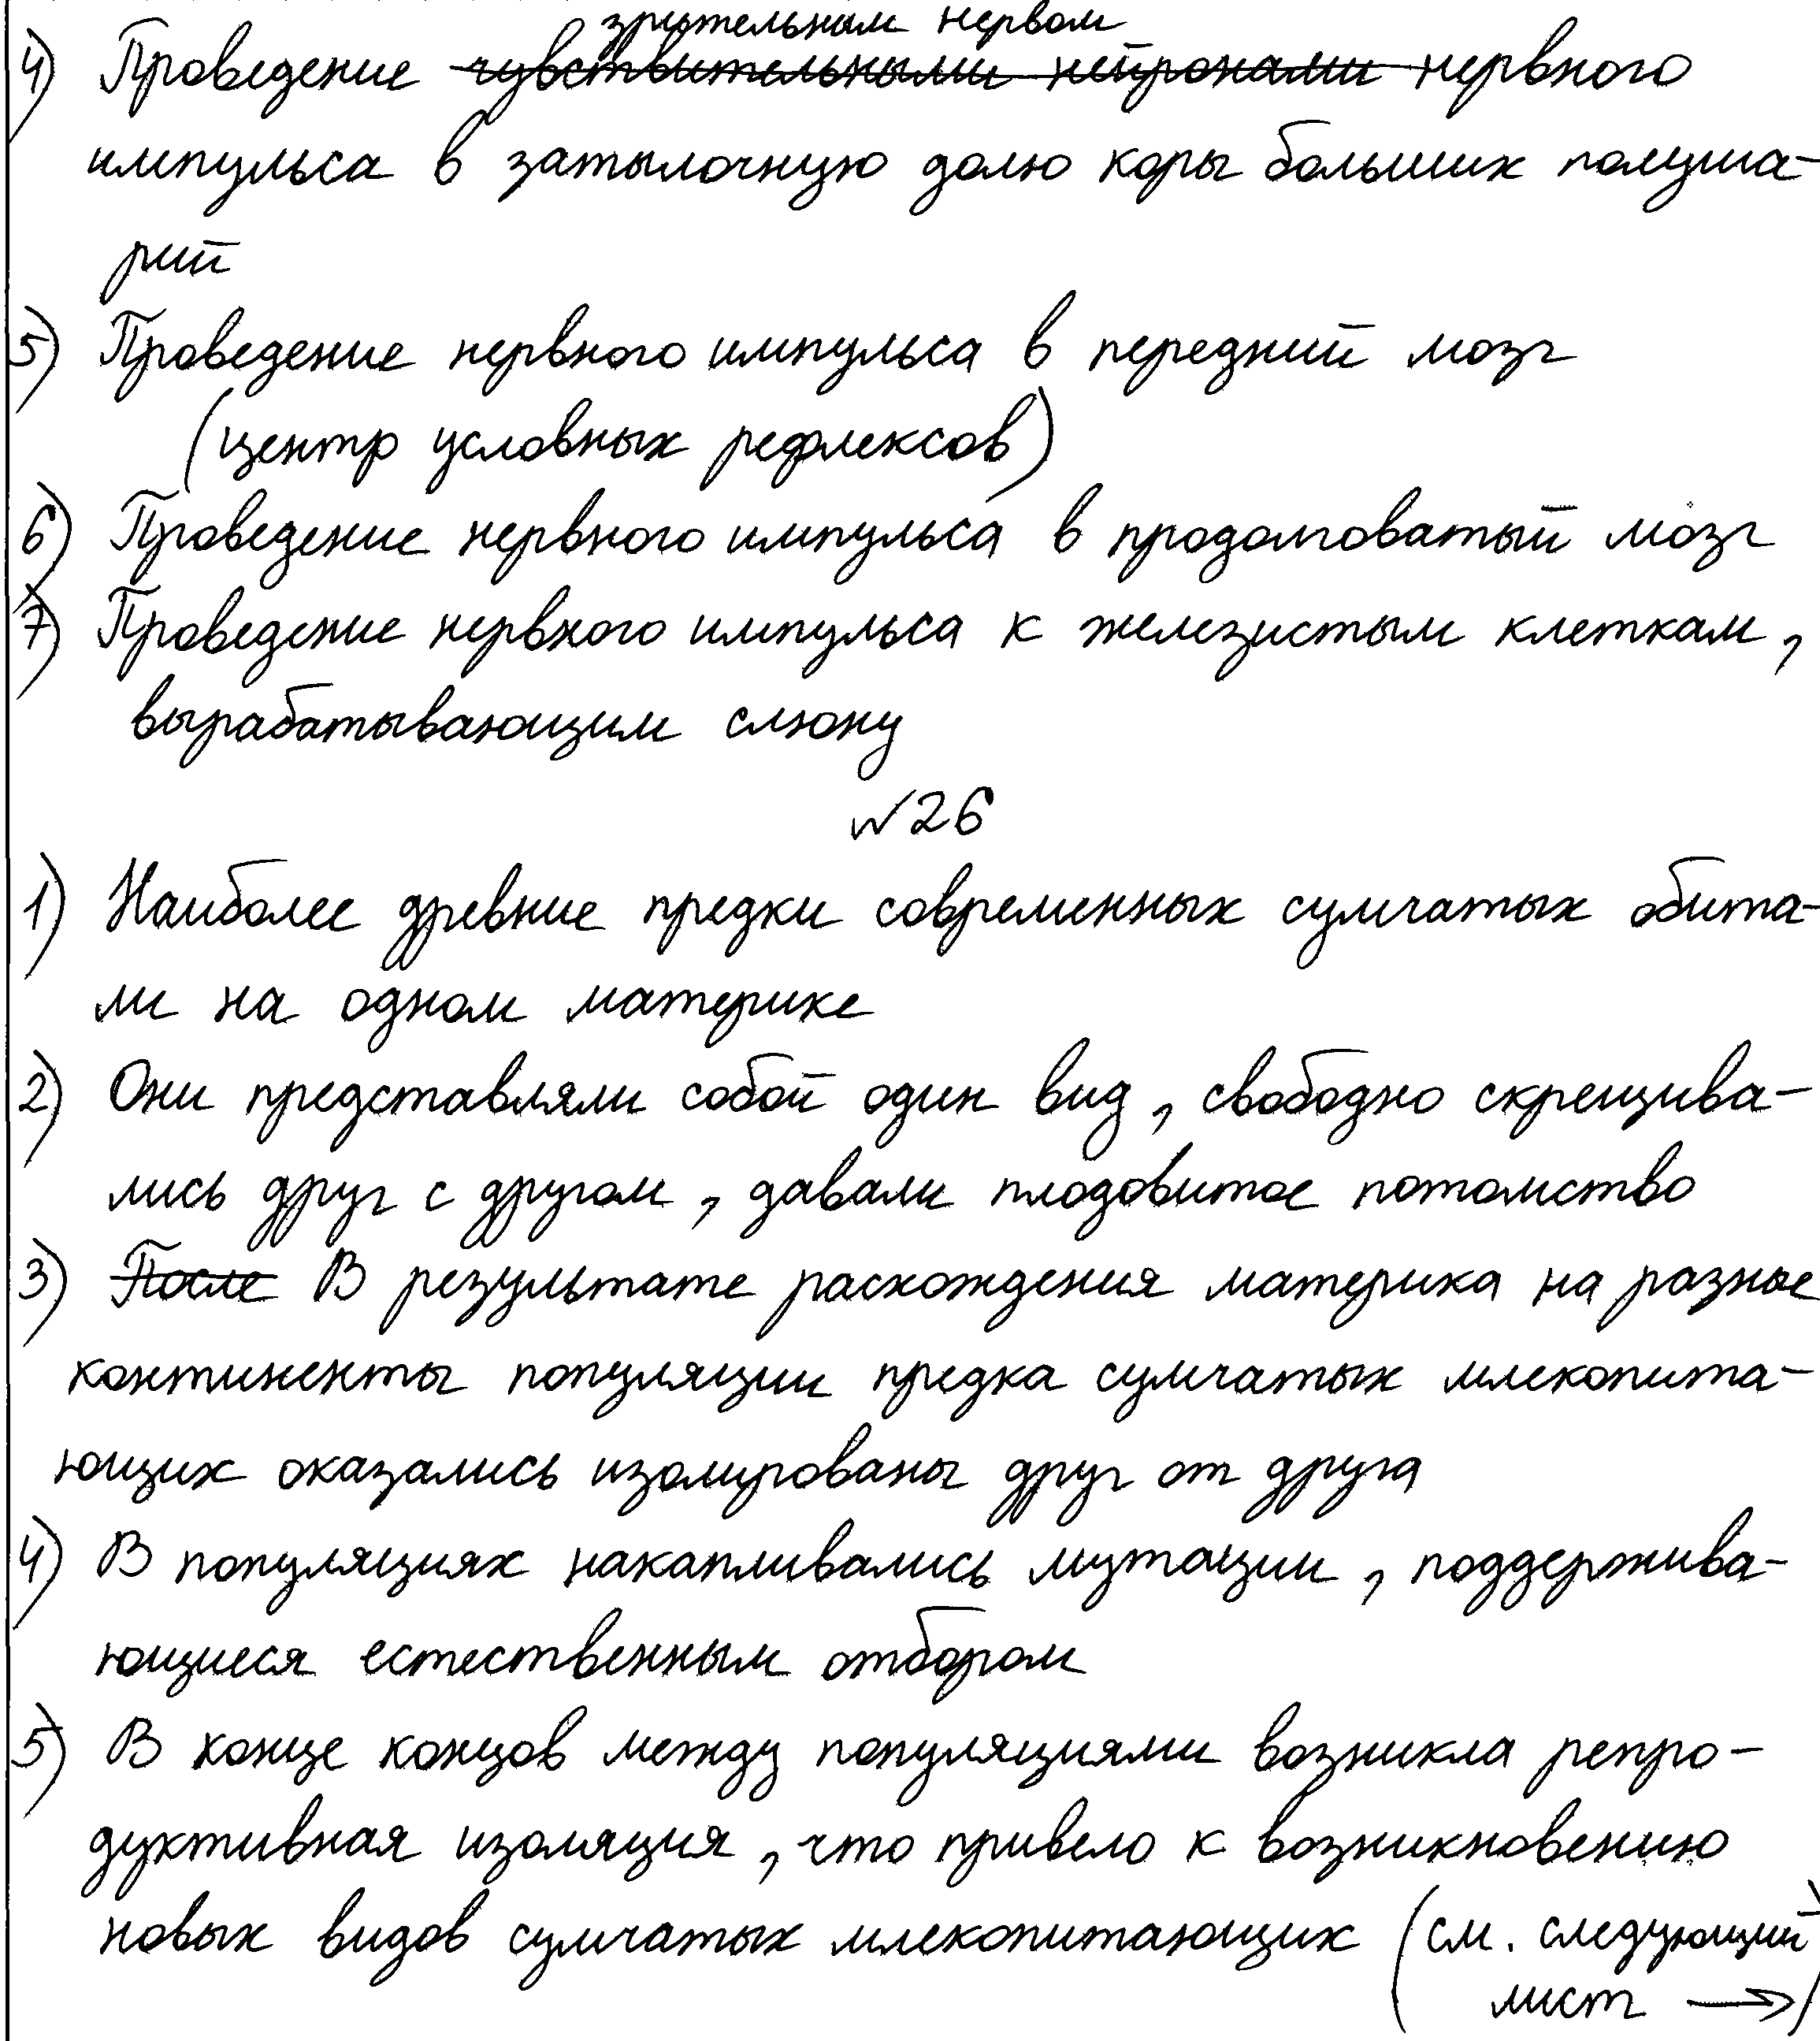 зрительным нервом
4) Проведение ~~чувствительными нейронами~~ нервного
импульса в затылочную долю коры больших полуша-
рий
5) Проведение нервного импульса в передний мозг
(центр условных рефлексов)
6) Проведение нервного импульса в продолговатый мозг
7) Проведение нервного импульса к железистым клеткам,
вырабатывающим слюну
№26
1) Наиболее древние предки современных сумчатых обита-
ли на одном материке
2) Они представляли собой один вид, свободно скрещива-
лись друг с другом, давали плодовитое потомство
3) ~~После~~ В результате расхождения материка на разные
континенты популяции предка сумчатых млекопита-
ющих оказались изолированы друг от друга
4) В популяциях накапливались мутации, поддержива-
ющиеся естественным отбором
5) В конце концов между популяциями возникла репро-
дуктивная изоляция, что привело к возникновению
новых видов сумчатых млекопитающих (см. следующий
лист →)